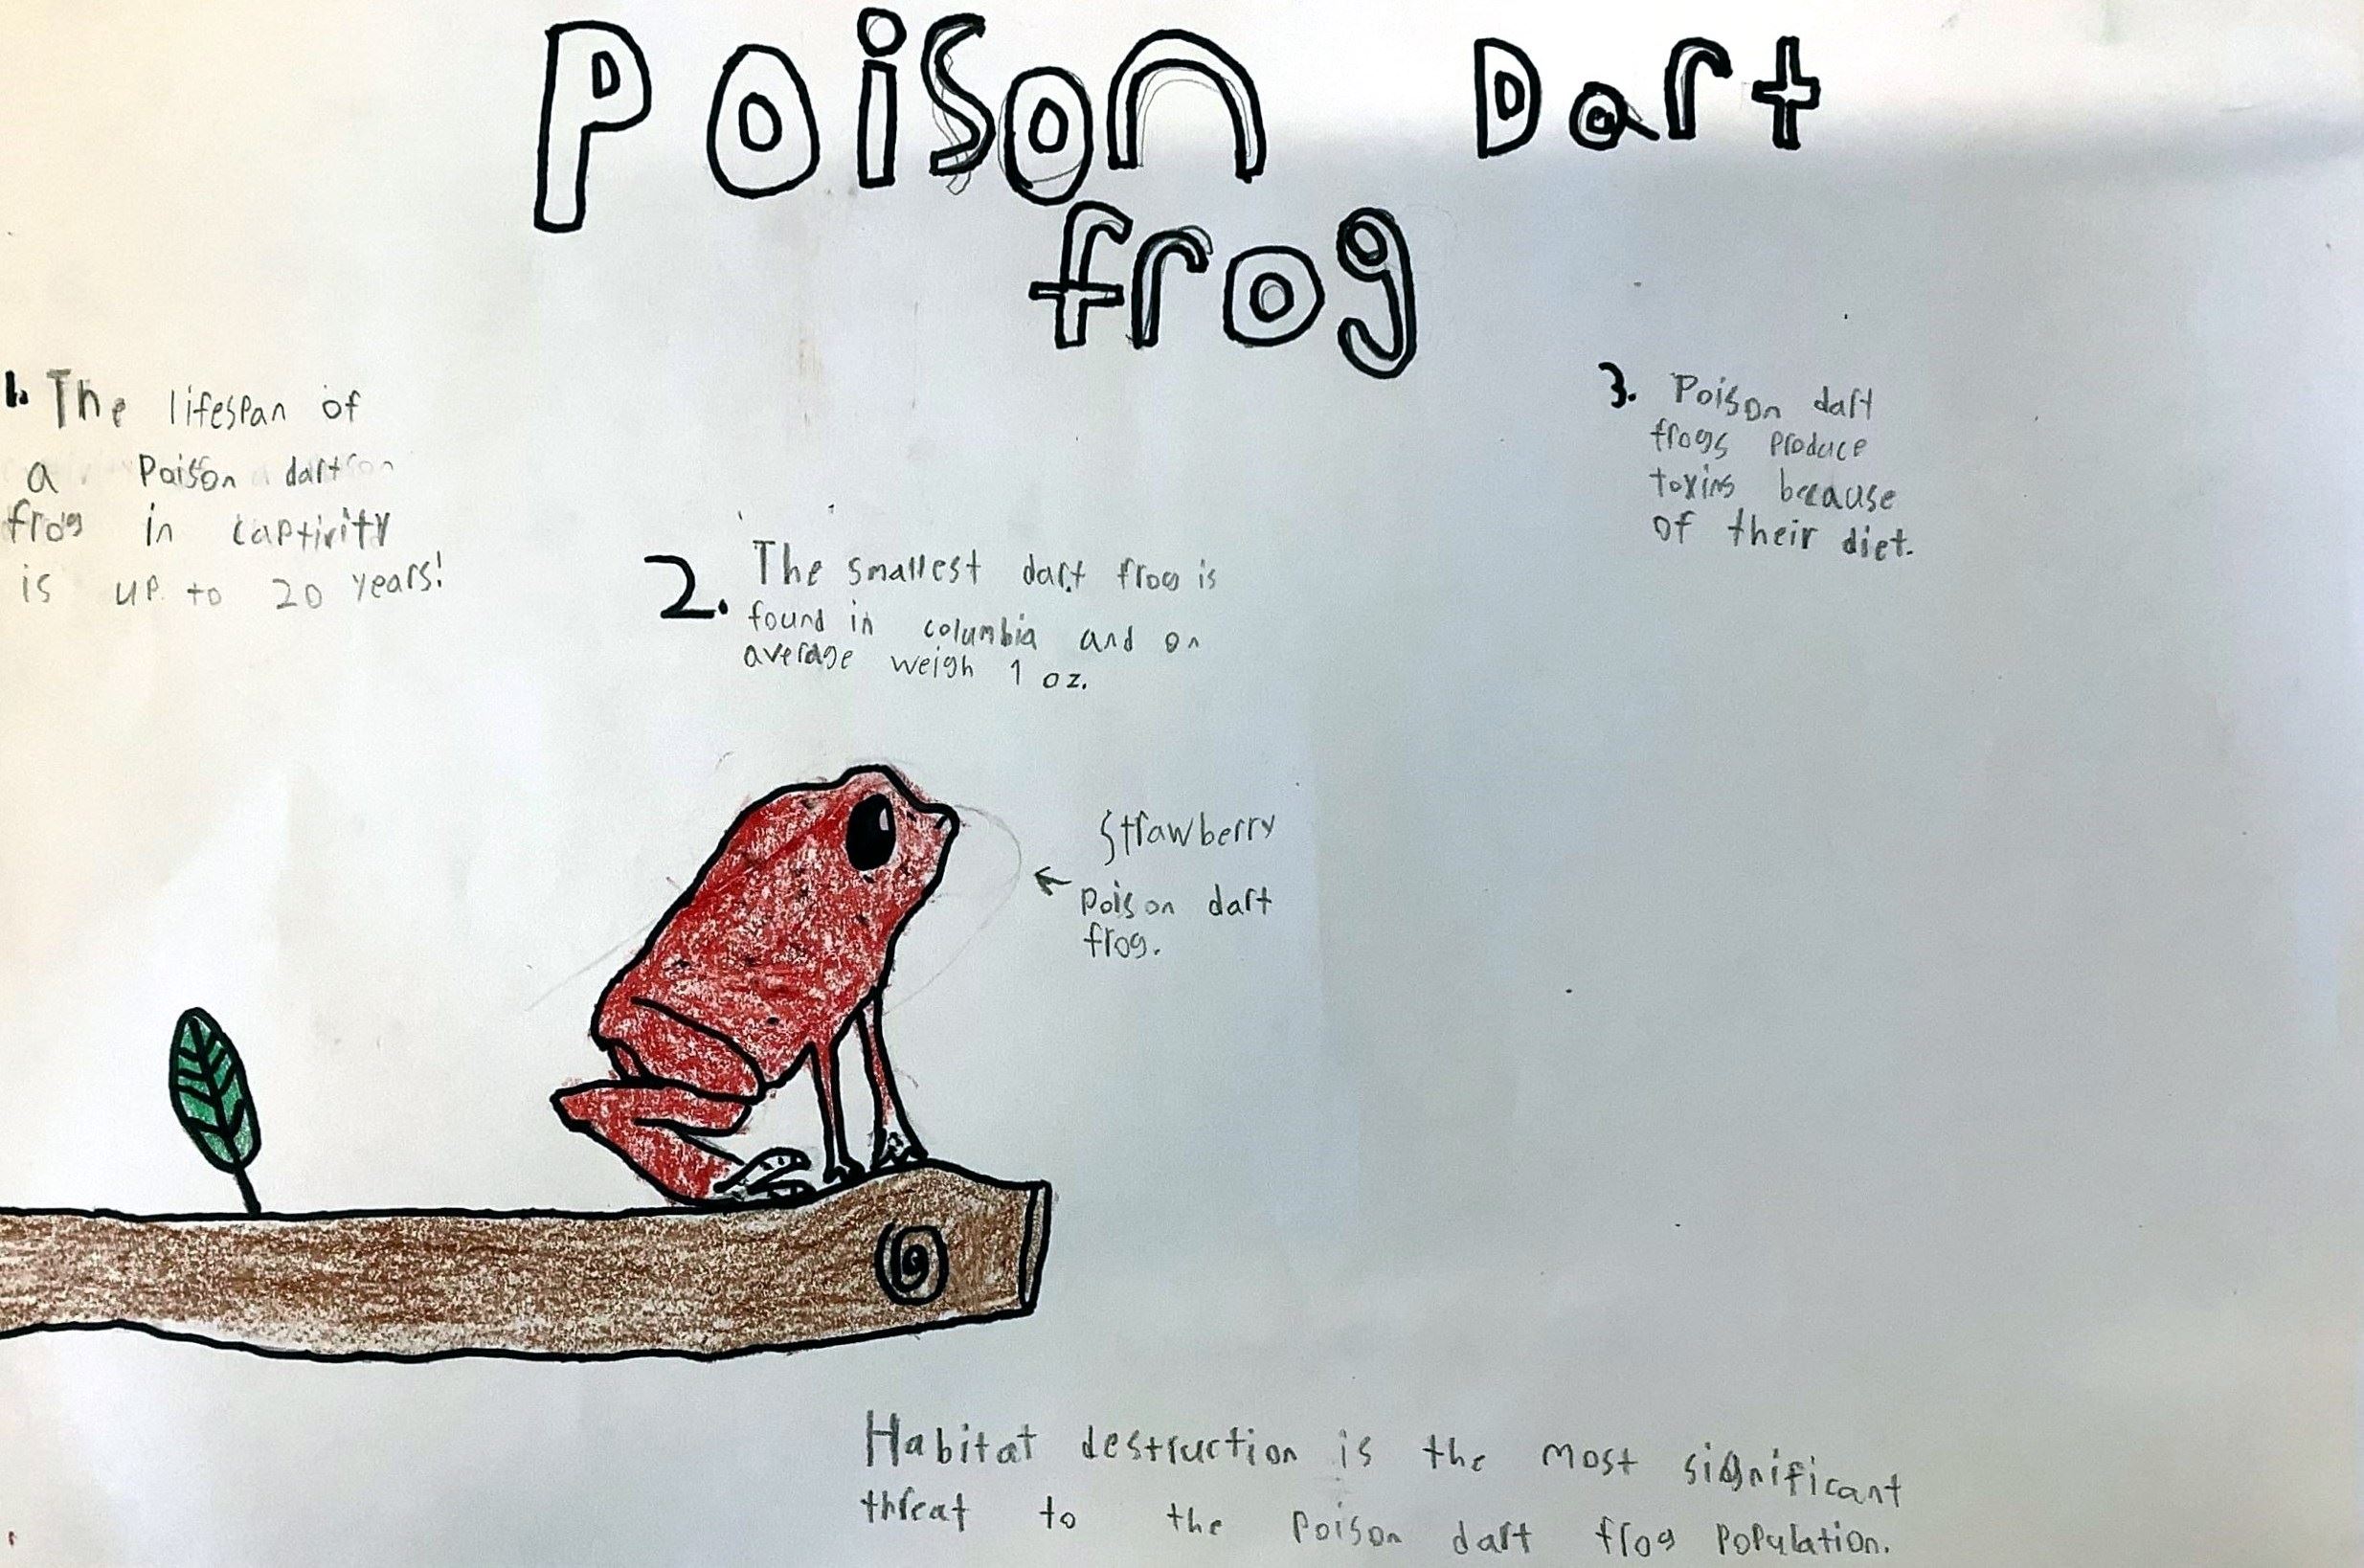 Poison Dart
frog
1. The lifespan of
a Poison dart
frog in captivity
is up to 20 years!
2. The smallest dart frog is
found in columbia and on
average weigh 1 oz.
3. Poison dart
frogs produce
toxins because
of their diet.
Strawberry
poison dart
frog.
Habitat destruction is the most significant
threat to the poison dart frog population.